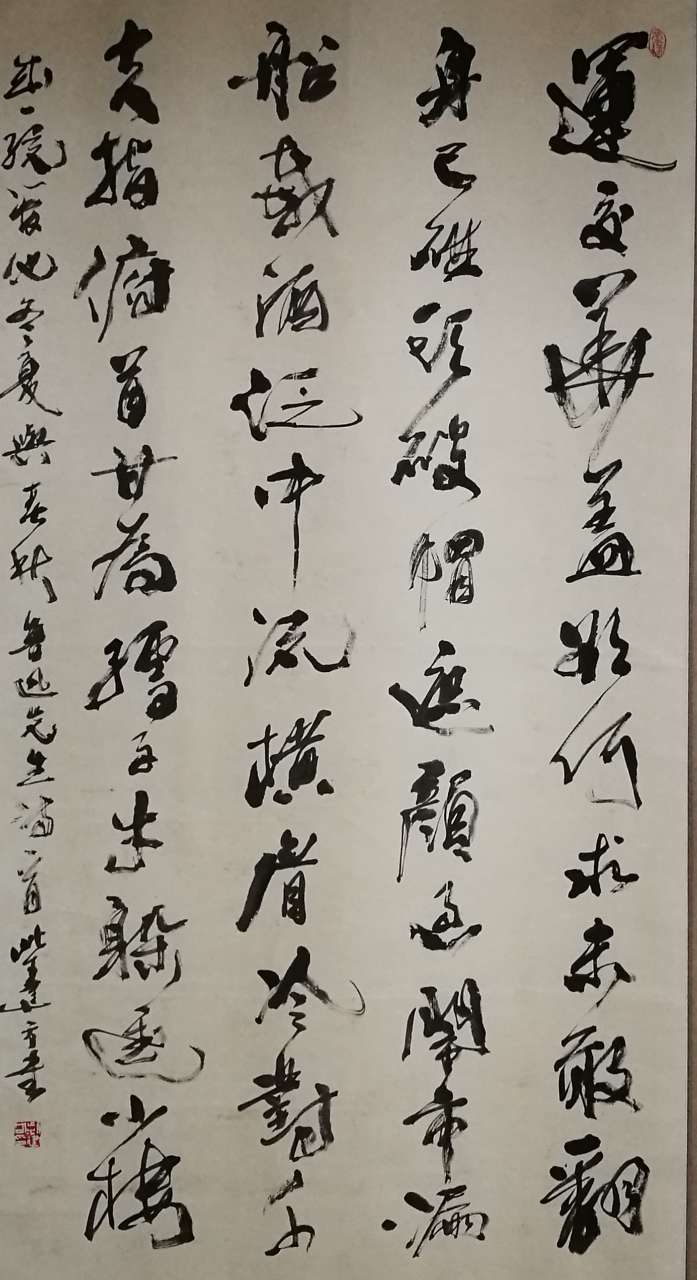 運交華蓋欲何求未敢翻
身已碰頭破帽遮顏過鬧市漏
船載酒泛中流橫眉冷對千
夫指俯首甘為孺子牛躲進小樓
成一統管他冬夏與春秋魯迅先生詩一首 柴建方書